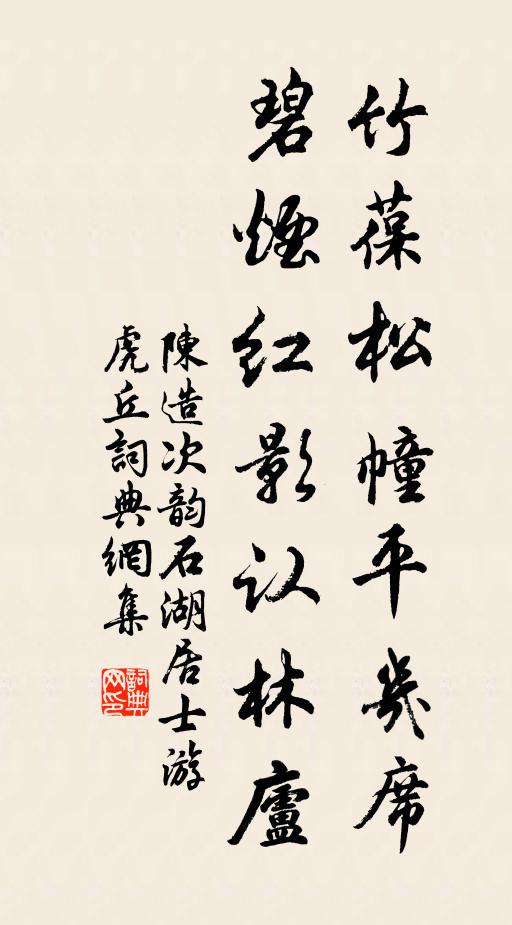 竹葆松幢平幾席
碧煙紅影认林廬
陳造次韵石湖居士游
虎丘詞典網集
詞典网印